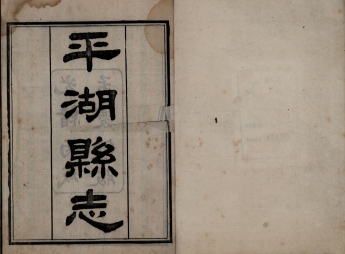 平湖縣志